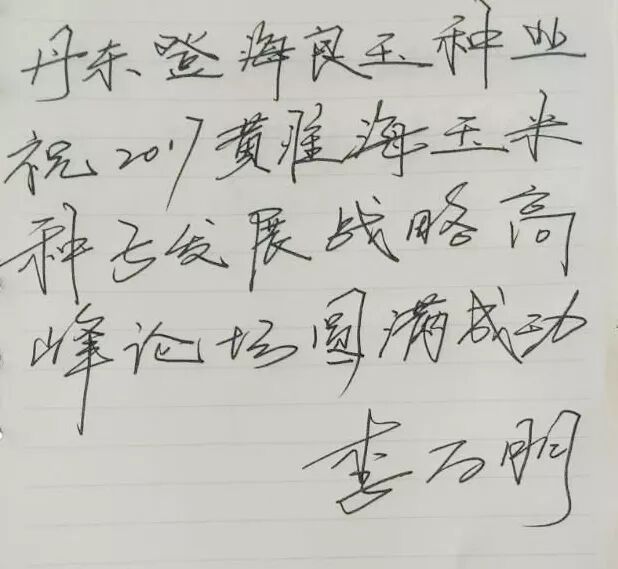 丹东登海良玉种业
祝2017黄淮海玉米
种子发展战略高
峰论坛圆满成功
李万明